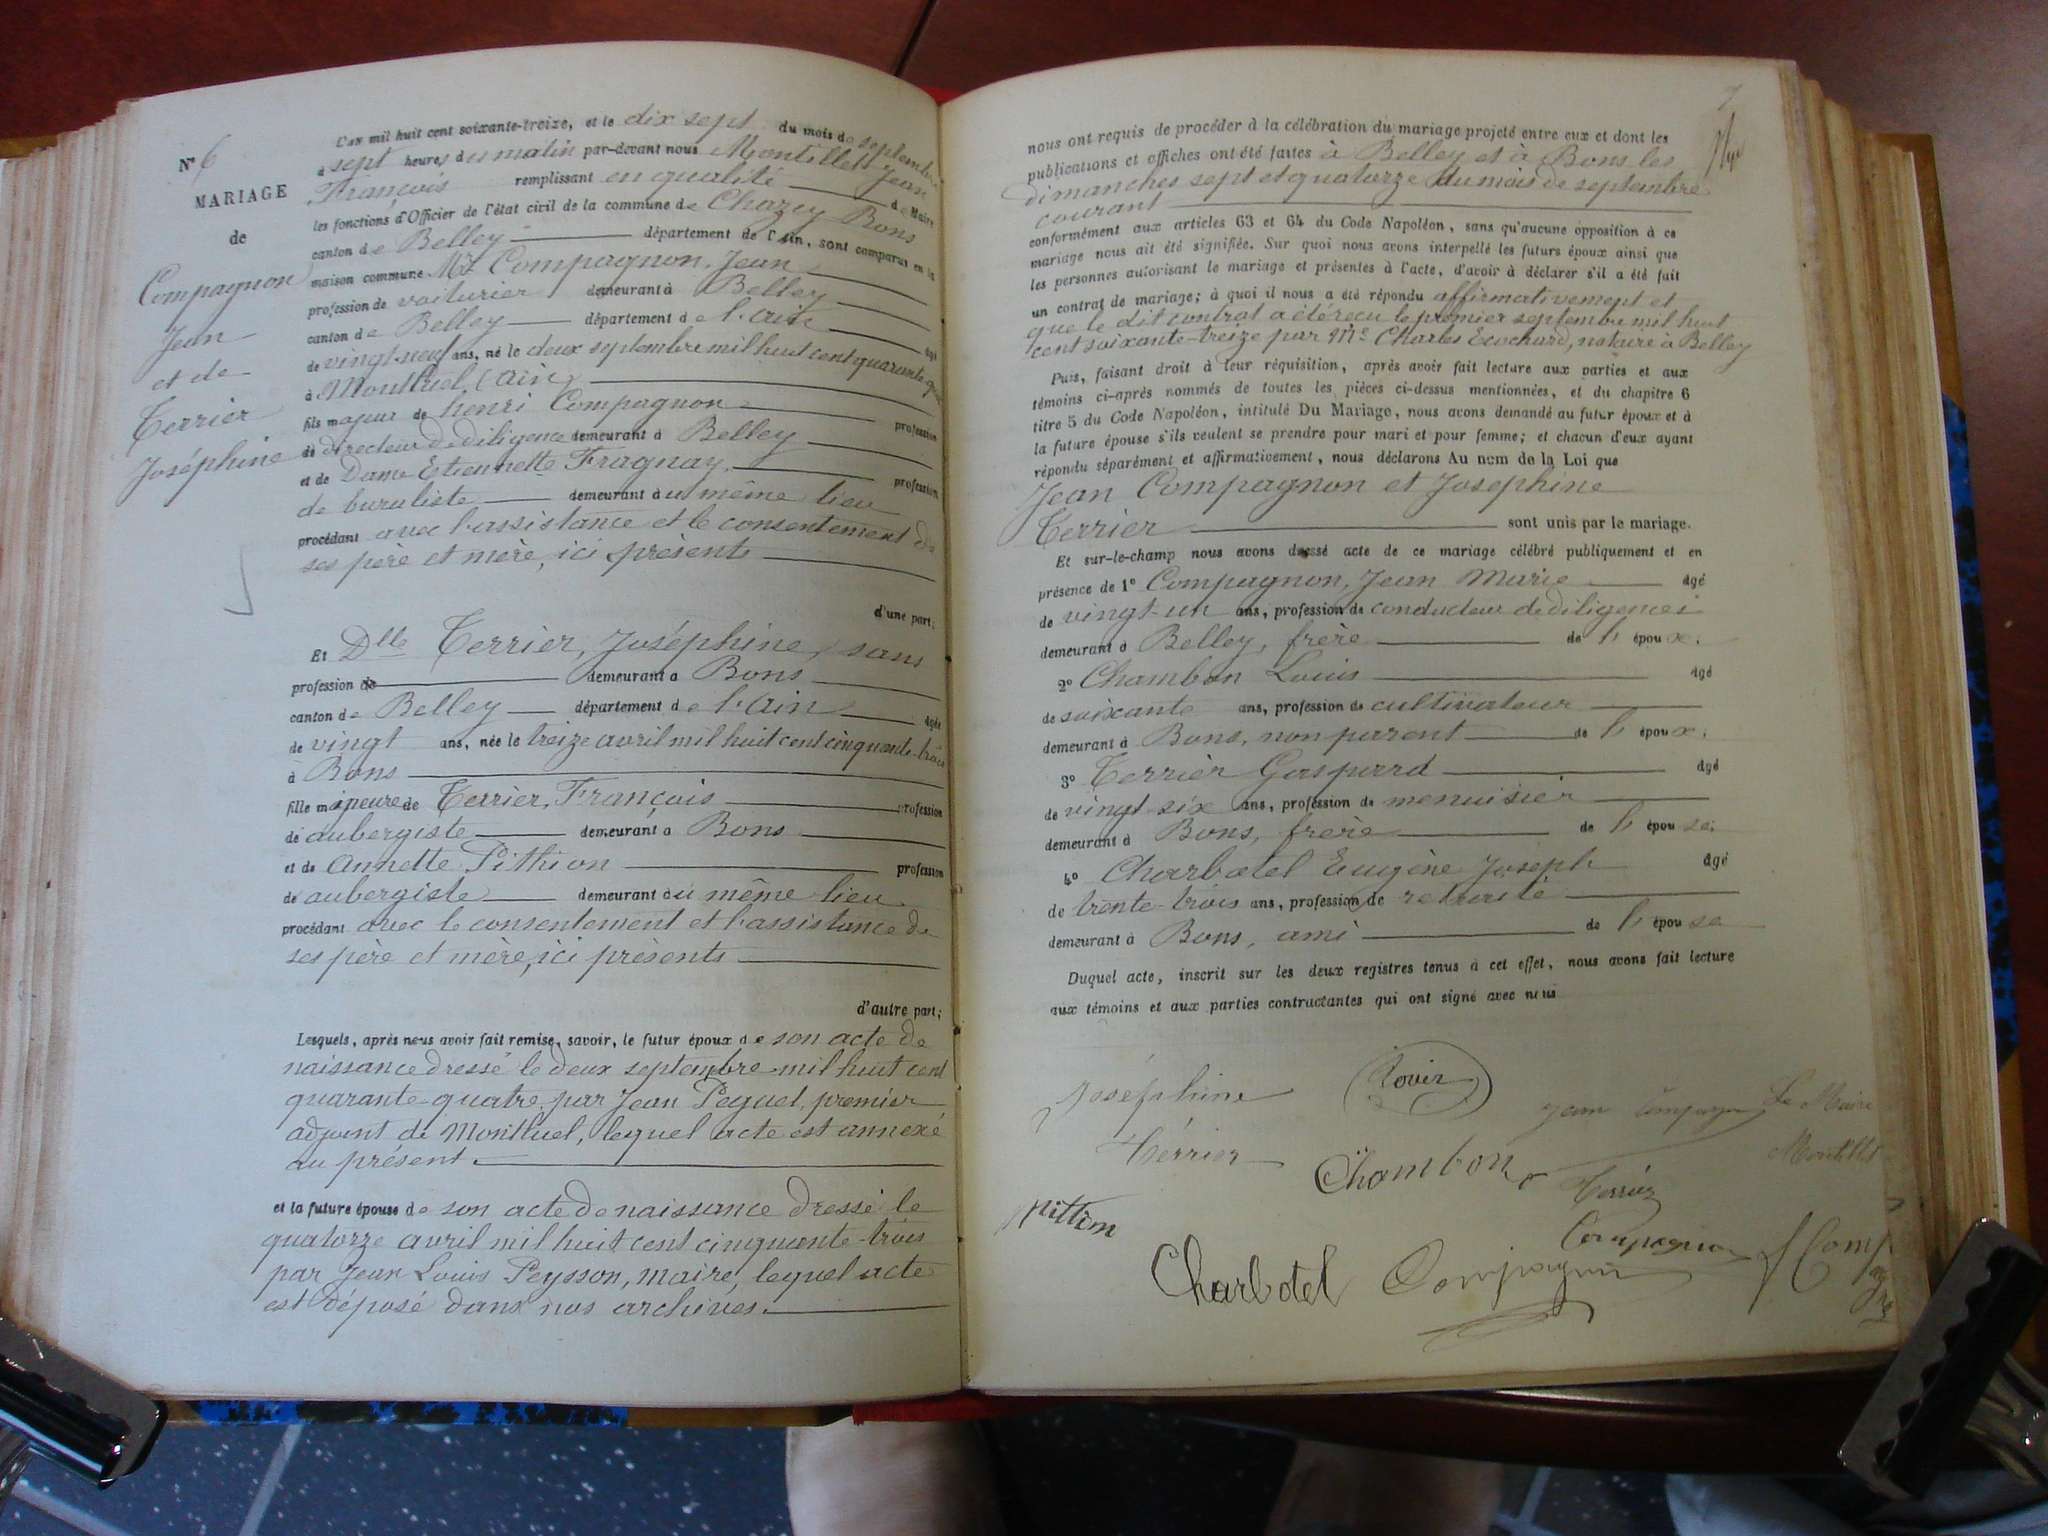 N° 6
MARIAGE
de
Compagnon
Jean
et de
Terrier
Joséphine
L'an mil huit cent soixante-treize, et le dix sept du mois de septembre
à sept heures du matin par-devant nous Montillet Jean
François remplissant en qualité de Maire
les fonctions d'Officier de l'état civil de la commune de Chazey Bons
canton de Belley département de l'Ain, sont comparus en la
maison commune Mr Compagnon, Jean
profession de voiturier demeurant à Belley
canton de Belley département de l'Ain âgé
de vingt-neuf ans, né le deux septembre mil huit cent quarante quatre
à Montluel, (Ain)
fils majeur de henri Compagnon profession
de directeur de diligence demeurant à Belley
et de Dame Etiennette Fragnay, profession
de buraliste demeurant au même lieu
procédant avec l'assistance et le consentement de
ses père et mère, ici présents
d'une part;
Et Dlle Terrier, Joséphine, sans
profession de demeurant à Bons
canton de Belley département de l'Ain âgée
de vingt ans, née le treize avril mil huit cent cinquante-trois
à Bons
fille majeure de Terrier, François profession
de aubergiste demeurant à Bons
et de Annette Pithion profession
de aubergiste demeurant au même lieu
procédant avec le consentement et l'assistance de
ses père et mère, ici présents
d'autre part;
Lesquels, après nous avoir fait remise, savoir, le futur époux de son acte de
naissance dressé le deux septembre mil huit cent
quarante-quatre, par Jean Peguet, premier
adjoint de Montluel, lequel acte est annexé
au présent.
et la future épouse de son acte de naissance dressé le
quatorze avril mil huit cent cinquante-trois
par Jean Louis Peysson, maire, lequel acte
est déposé dans nos archives.
7
nous ont requis de procéder à la célébration du mariage projeté entre eux et dont les
publications et affiches ont été faites à Belley et à Bons les
dimanches sept et quatorze du mois de septembre
courant
conformément aux articles 63 et 64 du Code Napoléon, sans qu'aucune opposition à ce
mariage nous ait été signifiée. Sur quoi nous avons interpellé les futurs époux ainsi que
les personnes autorisant le mariage et présentes à l'acte, d'avoir à déclarer s'il a été fait
un contrat de mariage; à quoi il nous a été répondu affirmativement et
que le dit contrat a été reçu le premier septembre mil huit
cent soixante-treize par Me Charles Ecochard, notaire à Belley
Puis, faisant droit à leur réquisition, après avoir fait lecture aux parties et aux
témoins ci-après nommés de toutes les pièces ci-dessus mentionnées, et du chapitre 6
titre 5 du Code Napoléon, intitulé Du Mariage, nous avons demandé au futur époux et à
la future épouse s'ils veulent se prendre pour mari et pour femme; et chacun d'eux ayant
répondu séparément et affirmativement, nous déclarons Au nom de la Loi que
Jean Compagnon et Josephine
Terrier sont unis par le mariage.
Et sur-le-champ nous avons dressé acte de ce mariage célébré publiquement et en
présence de 1° Compagnon, Jean Marie âgé
de vingt-un ans, profession de conducteur de diligences
demeurant à Belley, frère de l'époux;
2° Chambon Louis âgé
de soixante ans, profession de cultivateur
demeurant à Bons, non parent de l'époux;
3° Terrier Gaspard âgé
de vingt-six ans, profession de menuisier
demeurant à Bons, frère de l'épouse;
4° Charbotel Eugène Joseph âgé
de trente-trois ans, profession de retraité
demeurant à Bons, ami de l'épouse
Duquel acte, inscrit sur les deux registres tenus à cet effet, nous avons fait lecture
aux témoins et aux parties contractantes qui ont signé avec nous
Joséphine
Jean Compagnon
Le Maire
Térrier
Chambon
Montillet
Terrier
Pittion
Compagnon
Charbotel
Compagnon